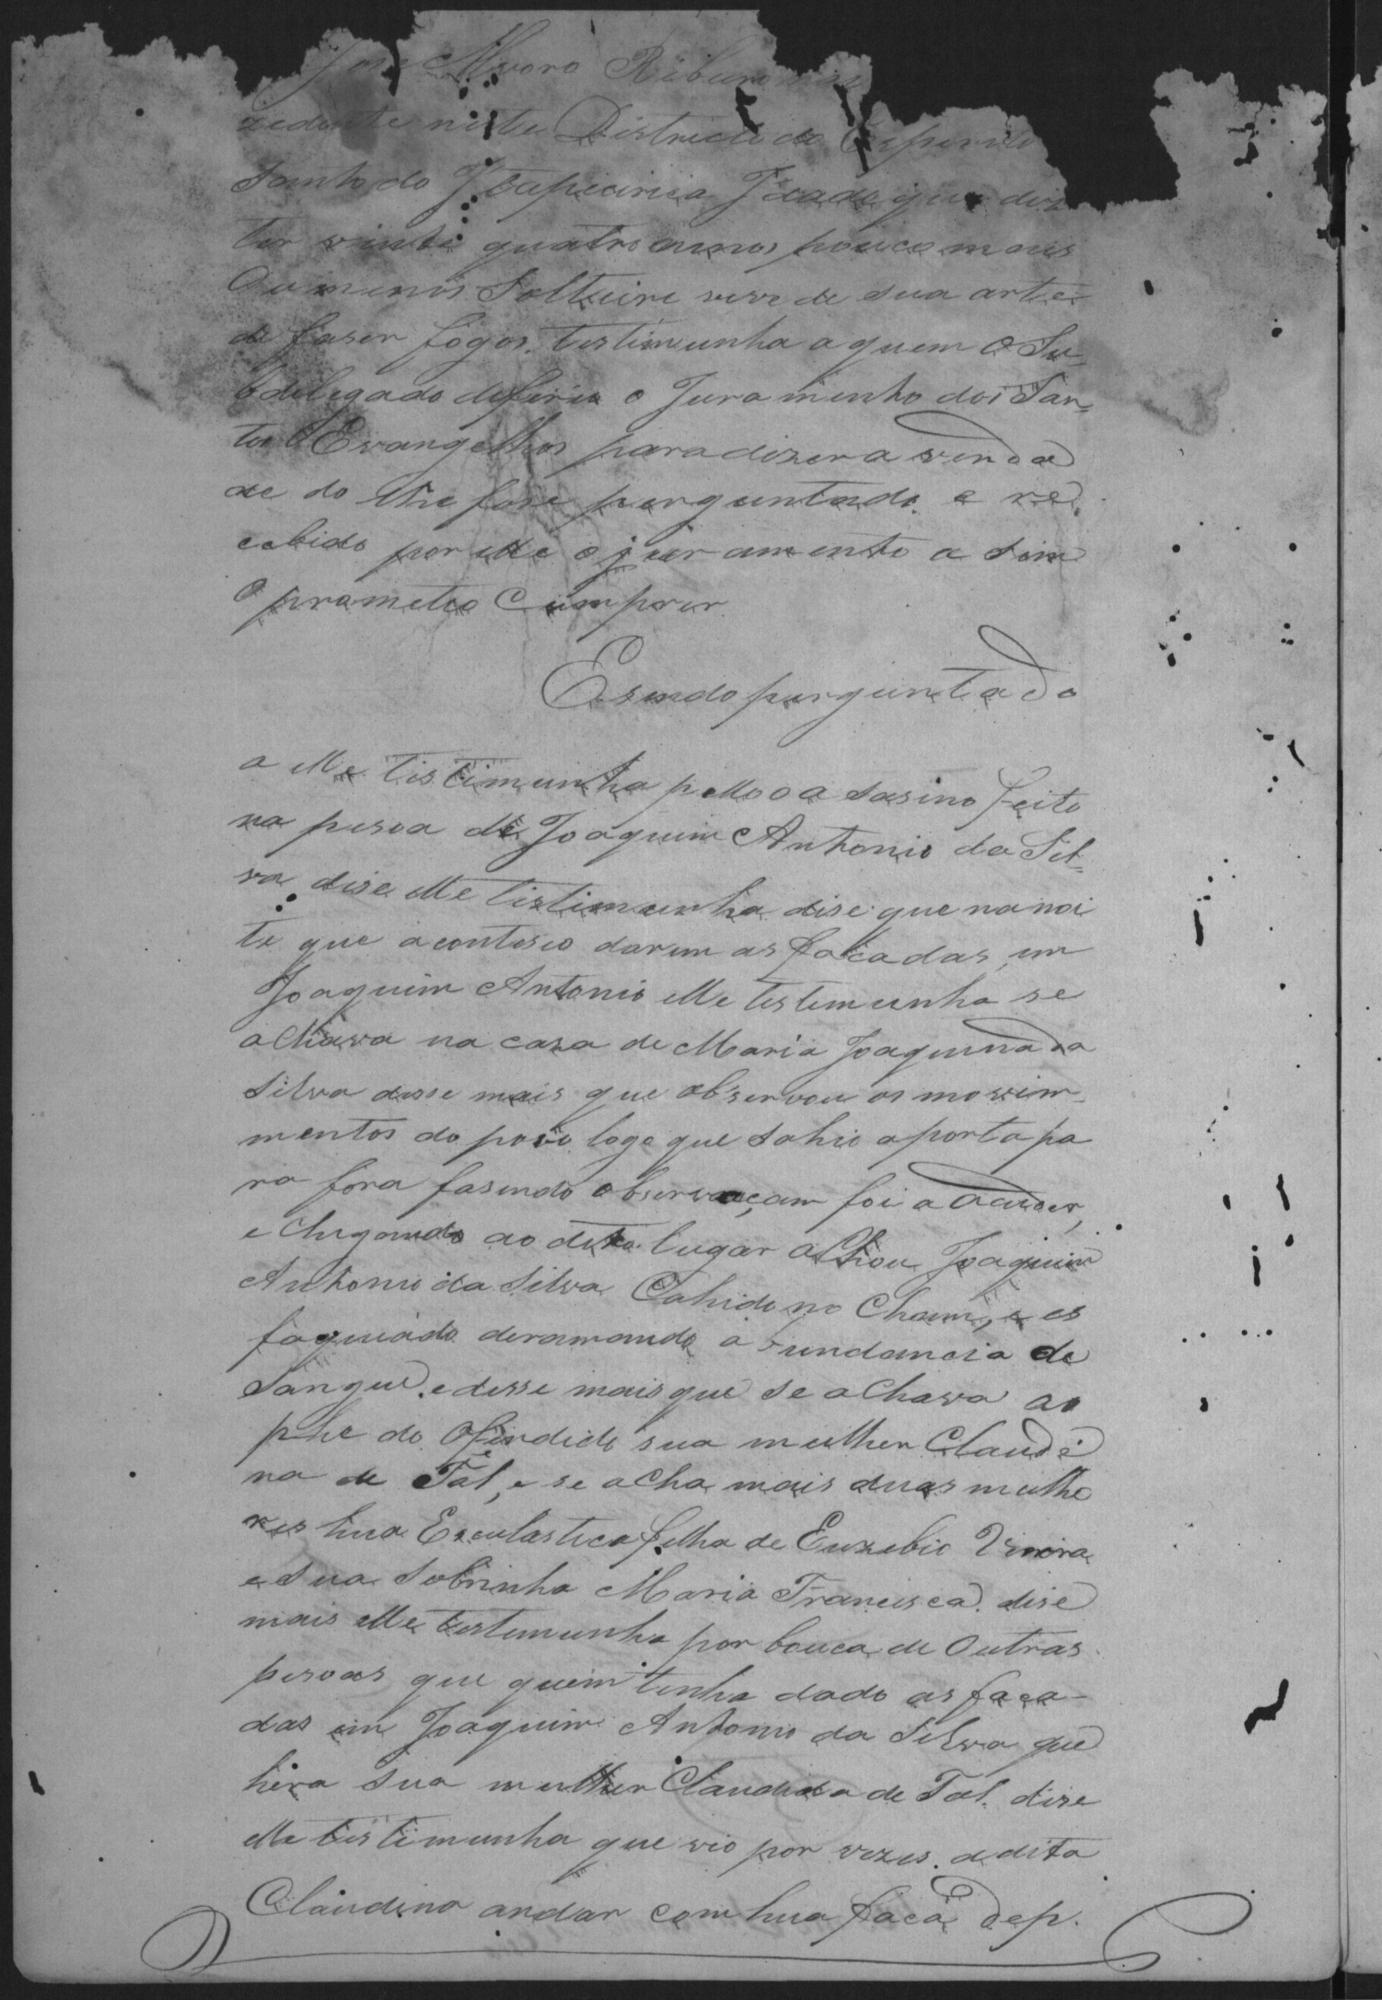 José Alvaro Ribeiro
zedente neste Districto do Espirito
Santo do Itapecirica Idade que diz
ter vinte quatro annos pouco mais
Ou menos Solteiro veve de sua arte
de faser fogos, testimunha a quem o Su-
bdelegado deferio o Juramento dos San-
tos Evangelhos para dizer a verda
de do que lhe fose perguntado e re
cebido por elle o juramento a sim
o prometeo Cumprir
E sendo perguntado
a elle testimunha pello a sasino feito
na pesoa de Joaquim Antonio da Sil-
va dise elle testimunha dise que na noi
te que acontesio darem as facadas em
Joaquim Antonio elle testemunha se
achava na casa de Maria Joaquina da
Silva disse mais que observou os movim-
mentos do povo logo que sahio a porta pa
ra fora fasendo observaçam foi a acuder,
e chegando ao dito lugar achou Joaquim
Antonio da Silva Cahido no Cham, e es
faquiado deramando a bundancia de
Sangue. e disse mais que se achava ao
phe do Ofendido sua mulher Claudi
na de Tal, e se acha mais duas mulhe
res hua Esculastica filha de Euzebio Vieira
e sua Sobrinha Maria Francisca. dise
mais elle testimunha por bouca de Outras
pesoas que quem tinha dado as faca-
das em Joaquim Antonio da Silva que
hera sua mulher Claudina de Tal. dise
elle testimunha que vio por vezes. a dita
Claudina andar com hua faca dep.